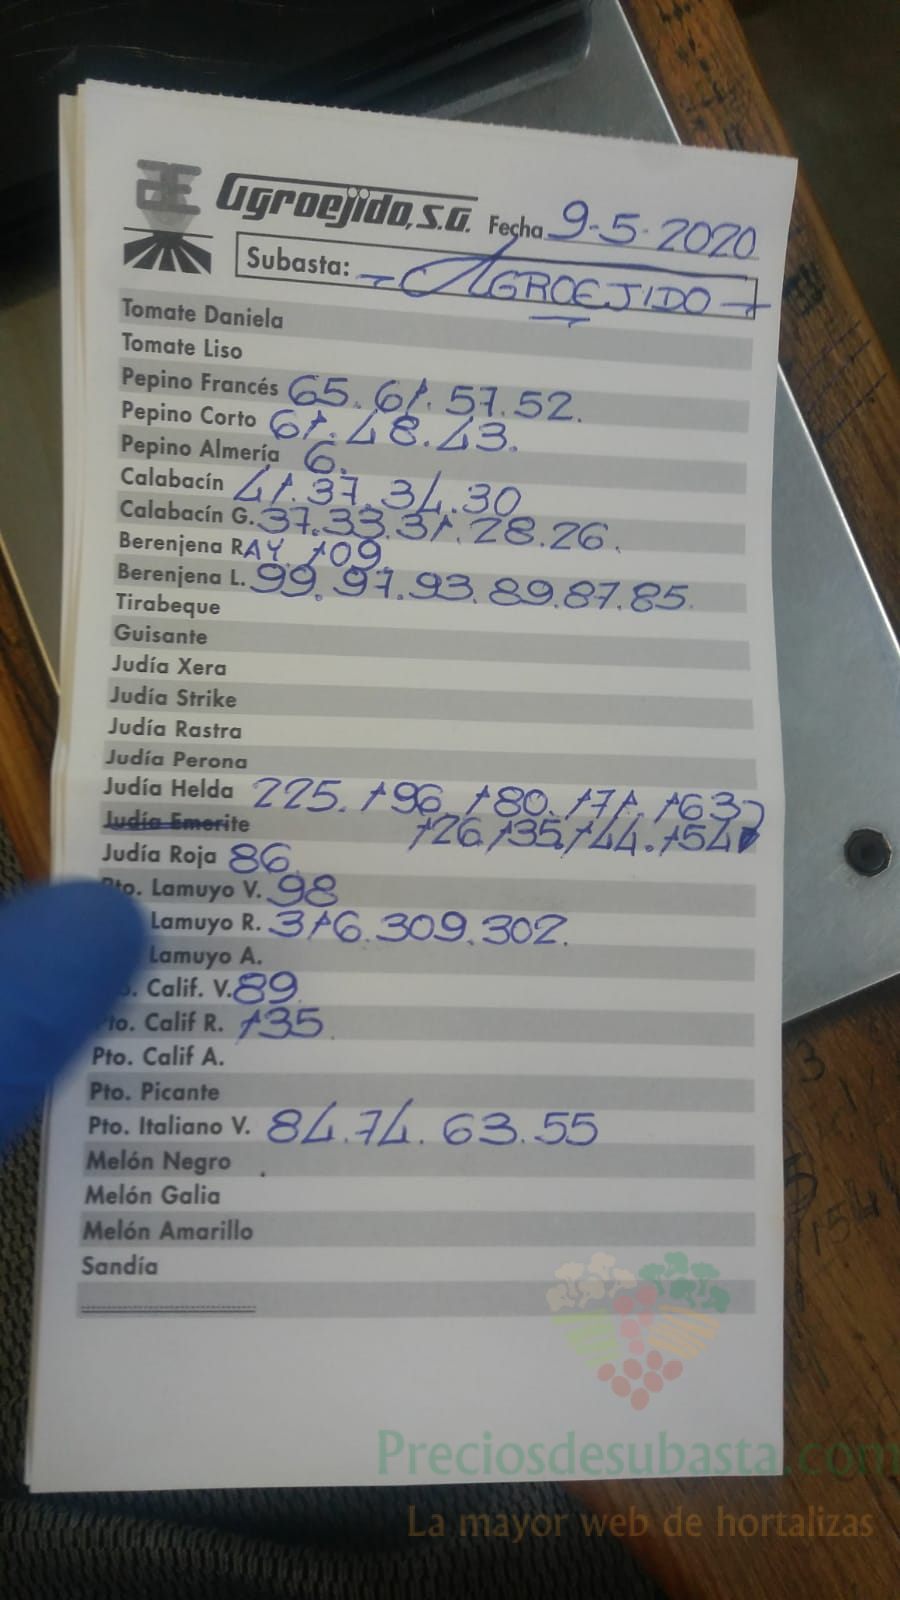 Agroejido, S.G. Fecha 9-5-2020
Subasta: - AGROEJIDO -
Tomate Daniela
Tomate Liso
Pepino Francés 65. 61. 57. 52.
Pepino Corto 61. 48. 43.
Pepino Almería 6.
Calabacín 41. 37. 34. 30
Calabacín G. 37. 33. 31. 28. 26.
Berenjena RAY. 109.
Berenjena L. 99. 97. 93. 89. 87. 85.
Tirabeque
Guisante
Judía Xera
Judía Strike
Judía Rastra
Judía Perona
Judía Helda 225. 196. 180. 171. 163
Judía Emerite 126. 135. 144. 154
Judía Roja 86.
Pto. Lamuyo V. 98
Lamuyo R. 316. 309. 302.
Lamuyo A.
. Calif. V. 89.
Pto. Calif R. 135.
Pto. Calif A.
Pto. Picante
Pto. Italiano V. 84. 74. 63. 55
Melón Negro
Melón Galia
Melón Amarillo
Sandía
Preciosdesubasta.com
La mayor web de hortalizas